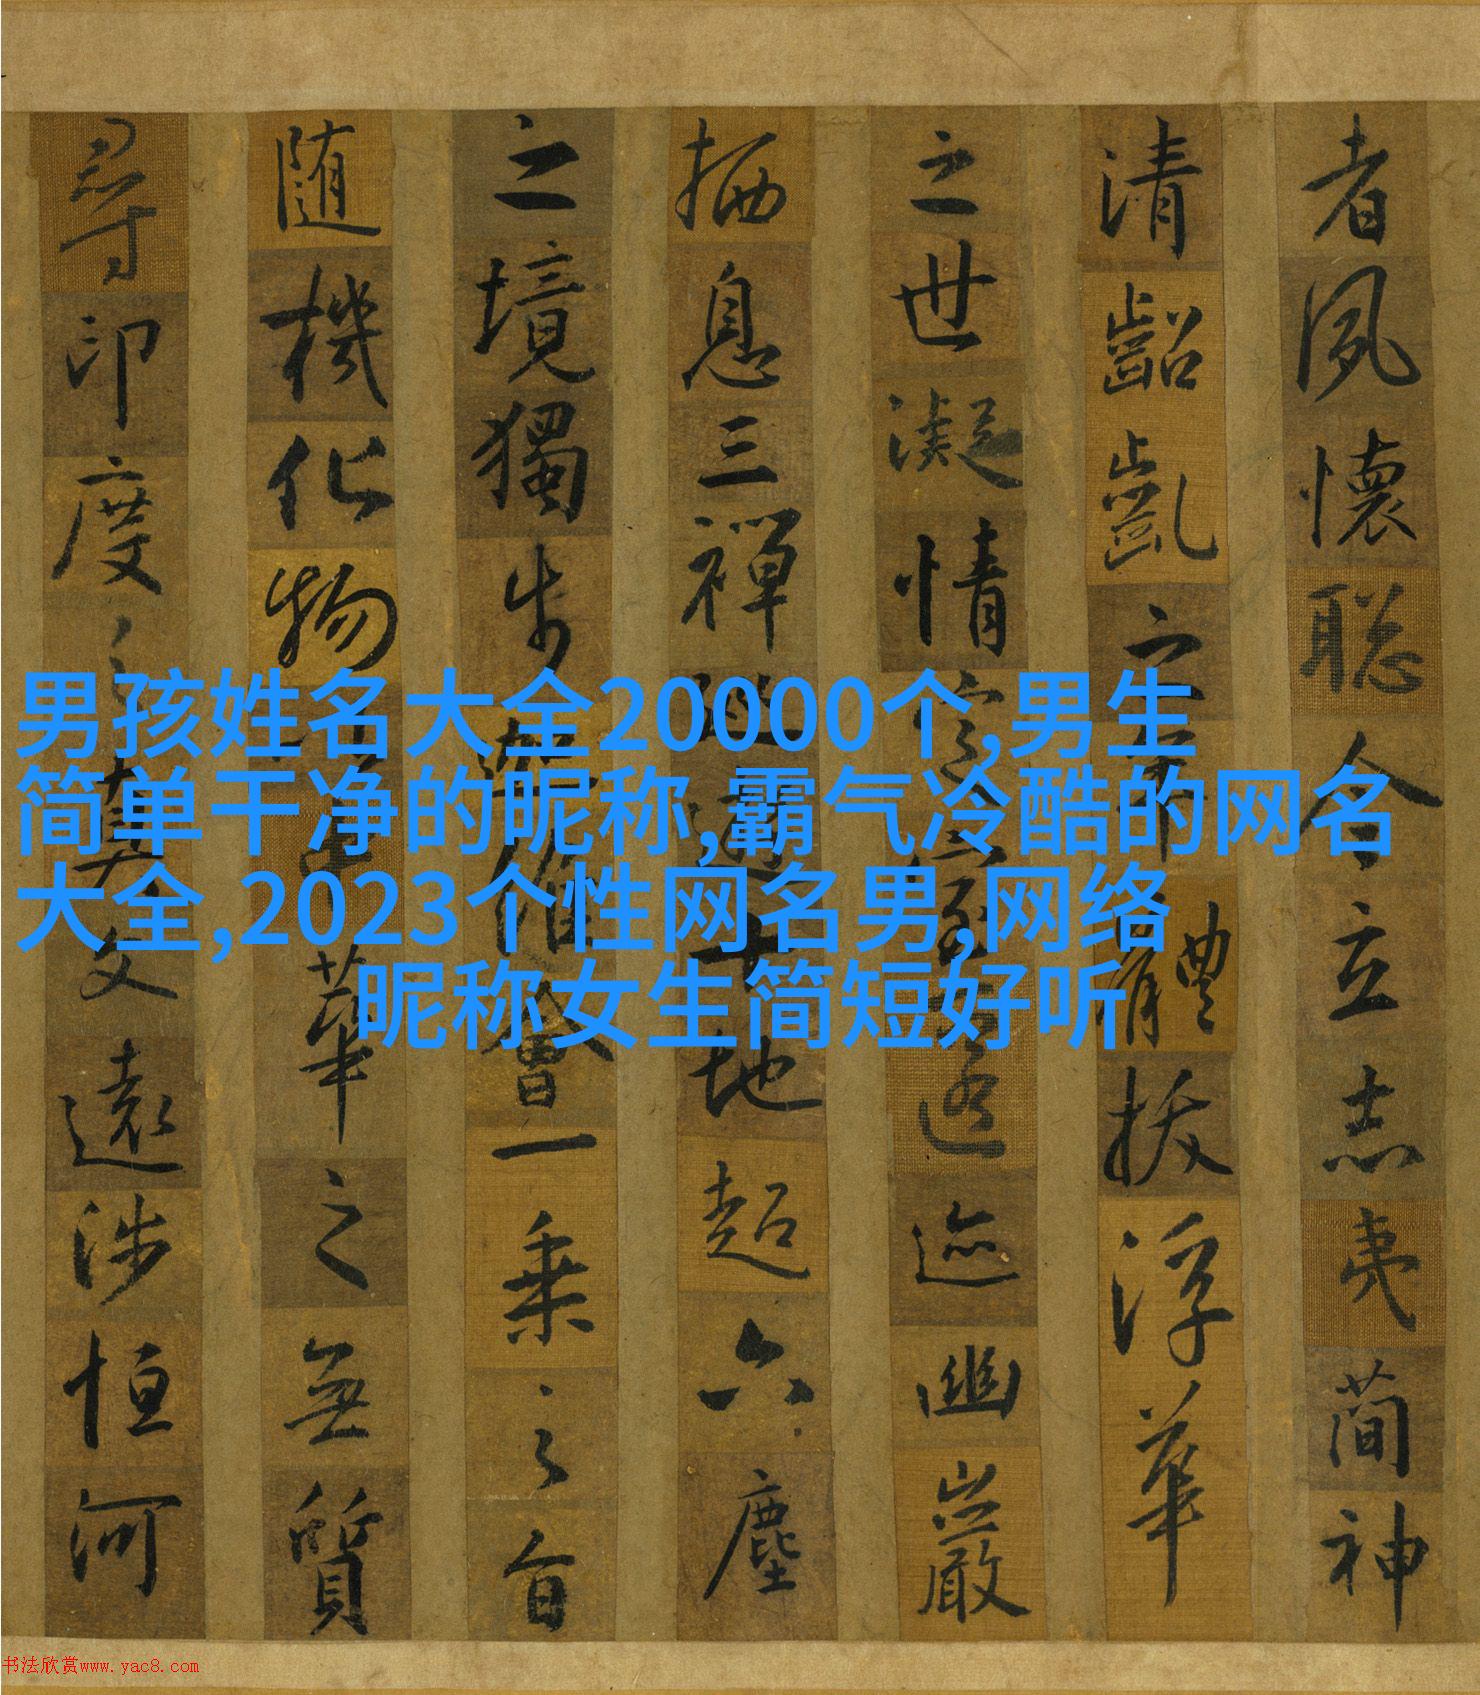 者夙懷聡令立志夷蕳神
清齠齔之年體拔浮華
之世凝情定室匿迹幽巖
栖息三禪巡遊十地超六塵
之境獨步迦維會一乗之旨
随機化物以中華之無質
尋印度之真文遠涉恒河
男孩姓名大全20000个,男生
简单干净的昵称,霸气冷酷的网名
大全,2023个性网名男,网络
昵称女生简短好听
书法欣赏www.yac8.com